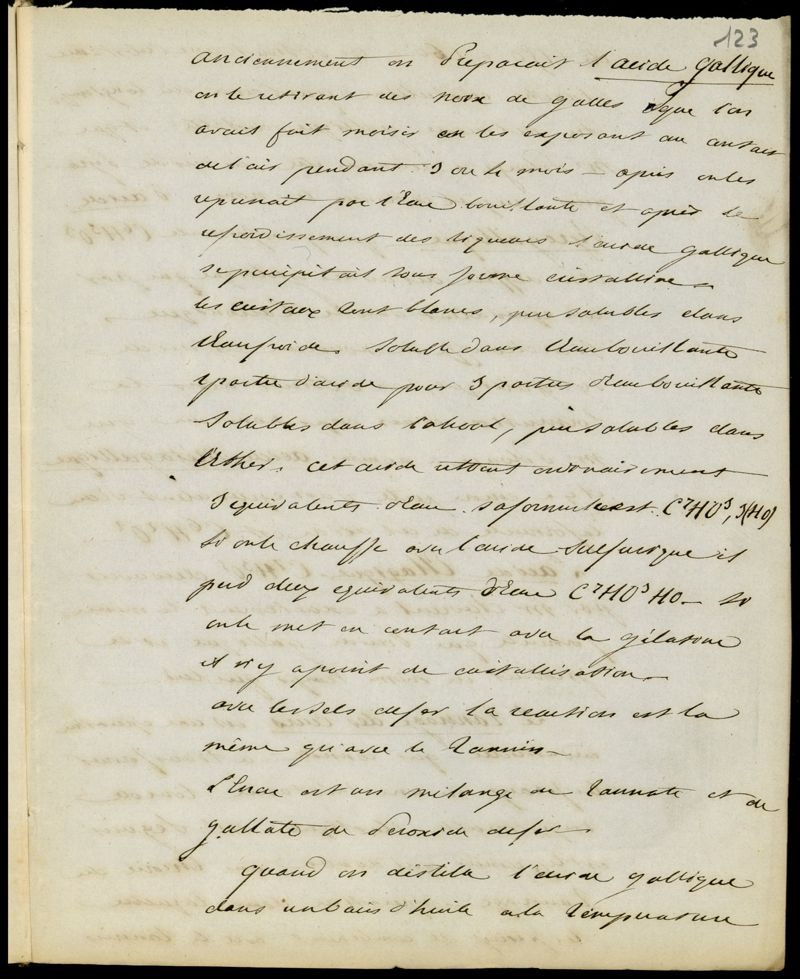 123
anciennement on Preparait l'acide gallique
en le retirant des noix de galles que l'on
avait fait moisir en les exposant au contact
de l'air pendant 3 ou 4 mois – après on les
reprenait par l'Eau bouillante et après le
refroidissement des liqueurs l'acide gallique
se precipitait sous forme cristalline –
les cristaux sont blancs, peu solubles dans
l'Eau froide soluble dans l'Eau bouillante
1 partie d'acide pour 3 parties d'Eau bouillante
Solubles dans l'alcool, peu solubles dans
l'Ether. cet acide retient ordinairement
3 equivalents d'eau sa formule est C⁷HO³, 3(HO)
Si on le chauffe avec l'acide Sulfurique il
perd deux equivalents d'Eau C⁷HO³HO – Si
on le met en contact avec la gélatine
il n'y a point de cristallisation –
avec les sels de fer la reaction est la
même qu'avec le Tannin –
L'Encre est un mélange de Tannate et de
gallate de Peroxide de fer –
quand on distille l'acide gallique
dans un bain d'huile a la Température